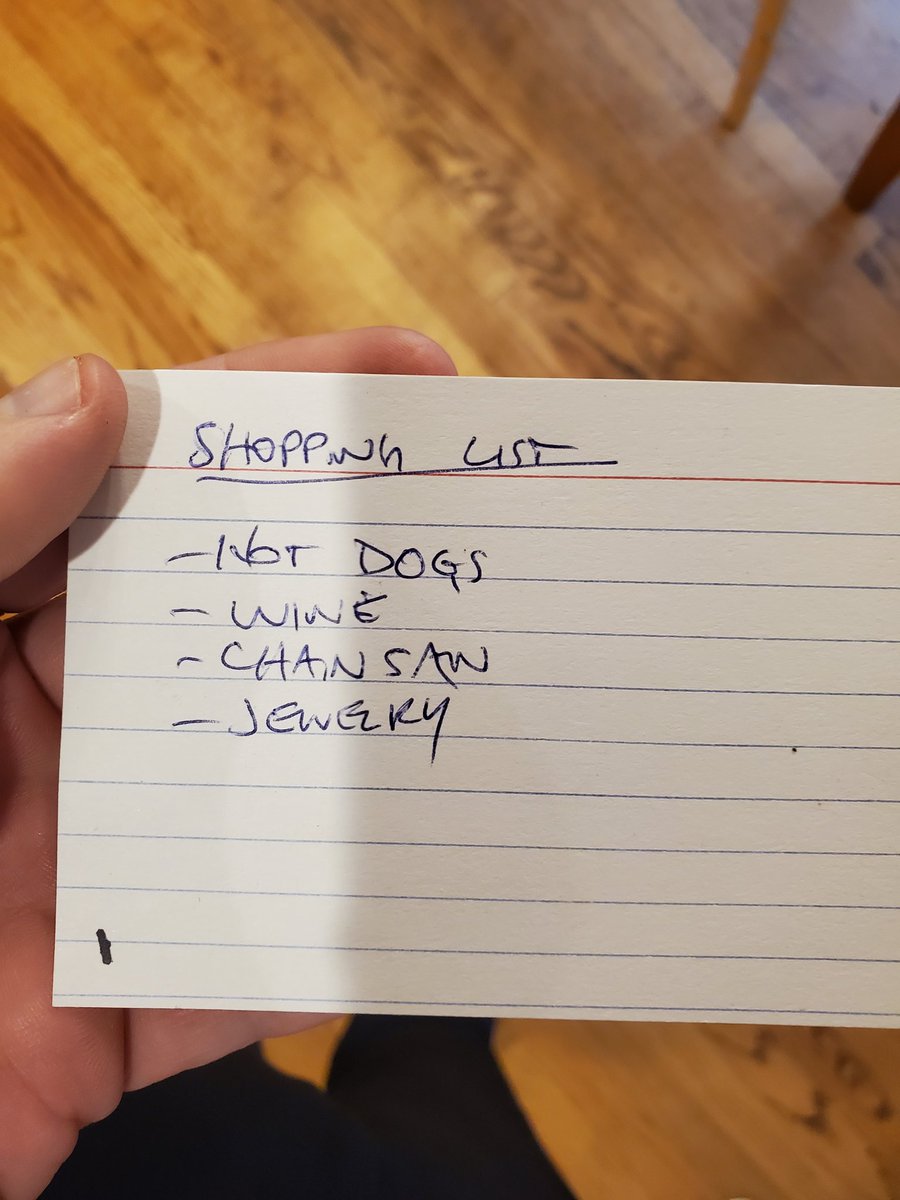 SHOPPING LIST
- HOT DOGS
- WINE
- CHAINSAW
- JEWELRY